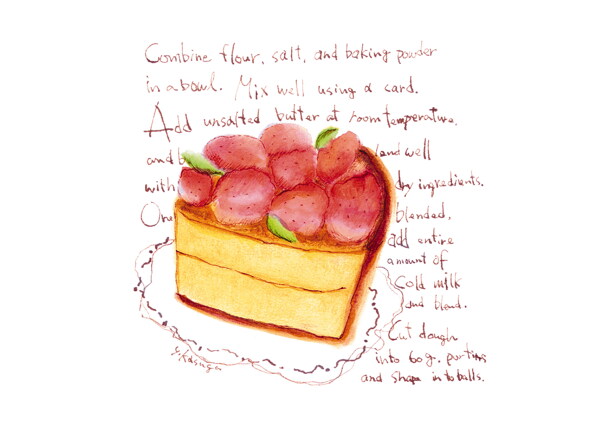 Combine flour, salt, and baking powder
in a bowl. Mix well using a card.
Add unsalted butter at room temperature,
and b lend well
with dry ingredients.
One blended,
add entire
amount of
Cold milk
and blend.
Cut dough
into 60g. portins
and shape in to balls.
y. Kasuga